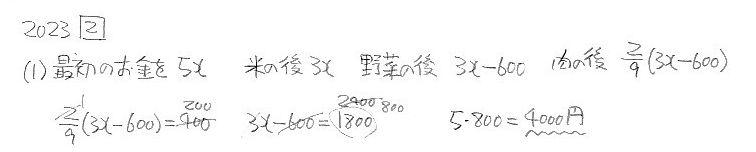 2023 2
(1) 最初のお金を 5x 米の後 3x 野菜の後 3x-600 肉の後 2/9(3x-600)
2/9(3x-600)=400 1 200 3x-600=1800 2400 800 5・800=4000円